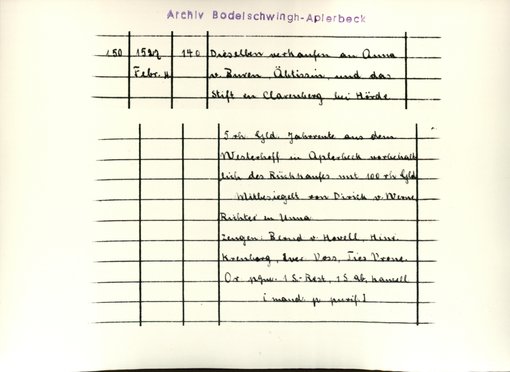 Archiv Bodelschwingh-Aplerbeck
150 1527 140 Dieselben verkaufen an Anna
Febr. v. Büren, Äbtissin, und das
Stift zu Clarenberg bei Hörde
5 rh. Gld. Jahrrente aus dem
Westerhoff in Aplerbeck vorbehalt
lich des Rückkaufes mit 100 rh. Gld
Mitbesiegelt von Dirick v. Werne
Richter zu Unna
Zeugen: Bernd v. Hovell, Hinr.
Krenberg, Ever. Voss, Ties Vrone.
Or. pgm. 1 S.-Rest, 1 S. ab,
[mand. p. purif.]